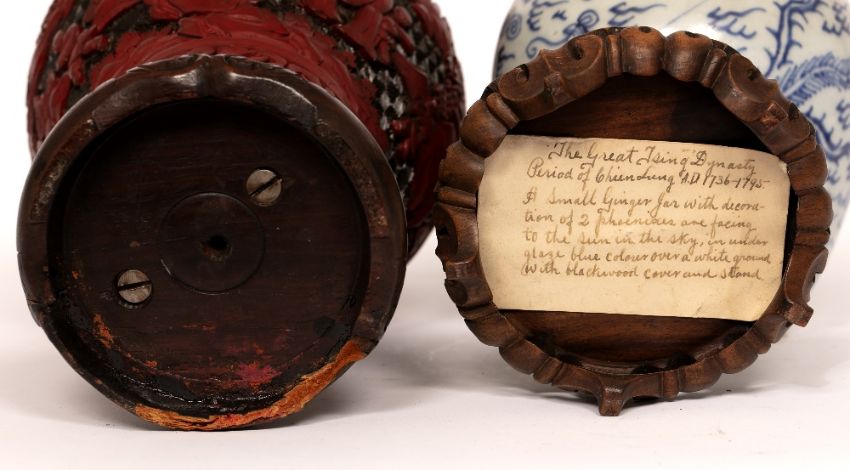 "The Great Tsing" Dynasty
Period of Chien Lung A.D 1736-1795-
A Small Ginger Jar with decora-
tion of 2 phoenixes are facing
to the sun in the sky, in under
glaze blue colour over a white ground
with blackwood cover and stand